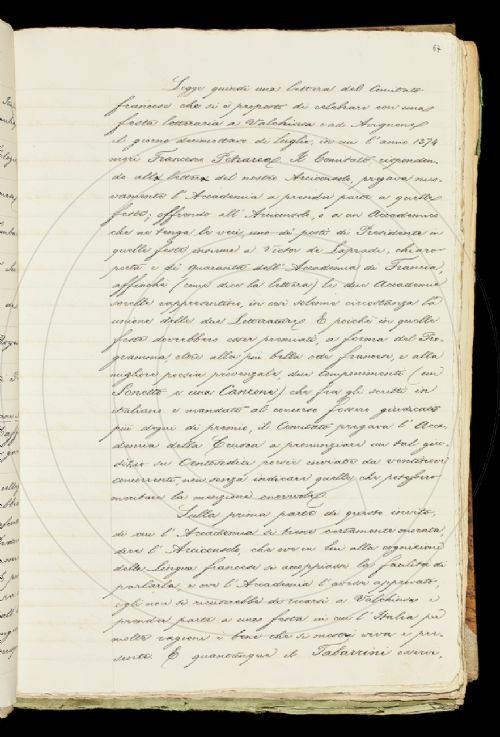 67
Legge quindi una lettera del Comitato
francese che si è proposto di celebrare con una
festa letteraria a Valchiusa e ad Avignone
il giorno diciottavo di luglio, in cui l'anno 1374
morì Francesco Petrarca. Il Comitato risponden-
do alla lettera del nostro Arciconsolo, pregava nuo-
vamente l'Accademia a prender parte a quella
festa; offrendo all'Arciconsolo, o a un Accademico
che ne tenga le veci, uno dei posti di Presidenza a
quelle feste insieme a Victor de Laprade, chiaro
poeta e dei Quaranta dell'Accademia di Francia,
affinché (come dice la lettera) le due Accademie
sorelle rappresentino in così solenne circostanza l'u-
nione delle due Letterature. E poiché in quella
festa dovrebbero esser premiati, a forma del Pro-
gramma oltre alla più bella ode francese, e alla
migliore poesia provenzale due componimenti (un
Sonetto e una Canzone) che fra gli scritti in
italiano e mandati al concorso fossero giudicati
più degni di premio, il Comitato pregava l'Acca-
demia della Crusca a pronunziare un tal giu-
dizio su Centotredici poesie inviate da ventinove
concorrenti, non senza indicare quelle che potrebbero
meritare la menzione onorevole.
Sulla prima parte di questo invito,
di cui l'Accademia si tiene certamente onorata,
dice l'Arciconsolo, che ove in lui alla cognizione
della lingua francese si accoppiasse la facilità di
parlarla, e ove l'Accademia l'avesse approvato,
egli non si ricuserebbe di recarsi a Valchiusa e
prender parte a una festa in cui l'Italia per
molte ragioni è bene che si mostri viva e pre-
sente. E quantunque il Tabarrini osservi,